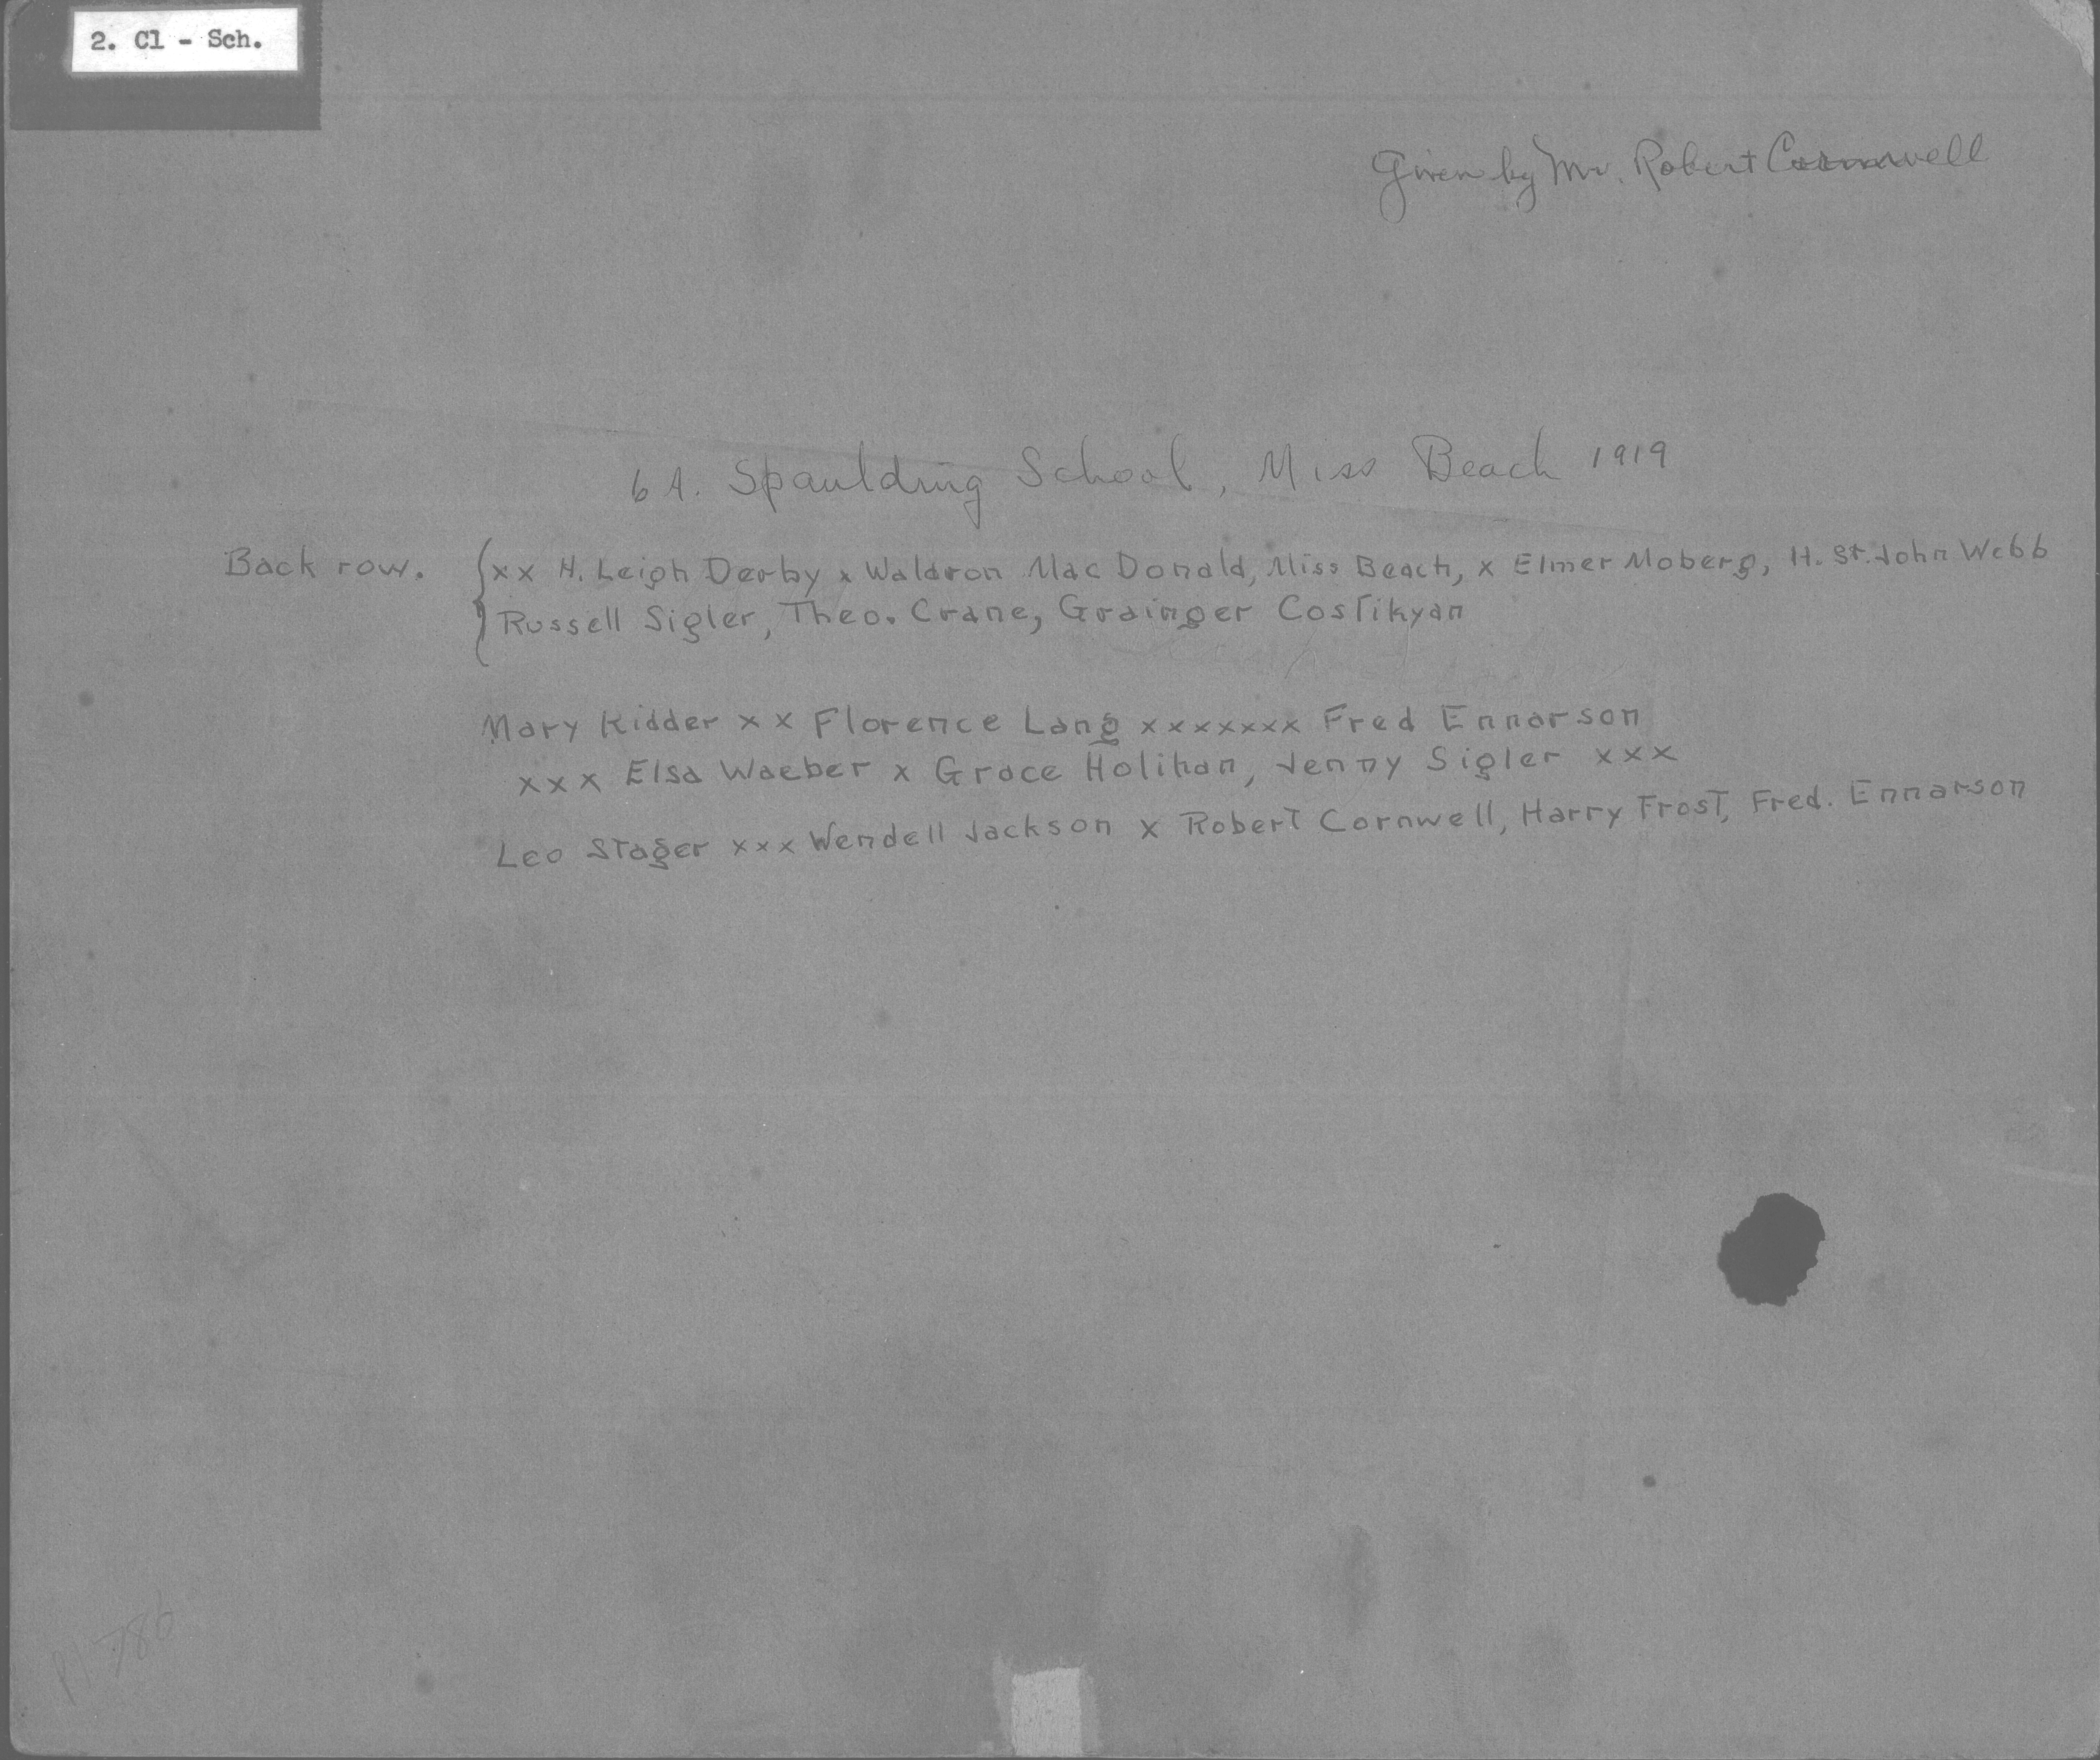 2. Cl - Sch.
Given by Mr. Robert Cornwell
6 A. Spaulding School, Miss Beach 1919
Back row. { x x H. Leigh Derby x Waldron Mac Donald, Miss Beach, x Elmer Moberg, H. St. John Webb
Russell Sigler, Theo. Crane, Grainger Costikyan
Mary Kidder x x Florence Lang x x x x x x x Fred Ennarson
x x x Elsa Waeber x Grace Holihan, Jenny Sigler x x x
Leo Stager x x x Wendell Jackson x Robert Cornwell, Harry Frost, Fred. Ennarson
P1 786